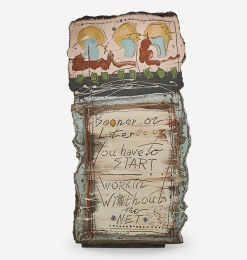 Sooner or
Later
you have to
START
WORKIN
Without
the
NET